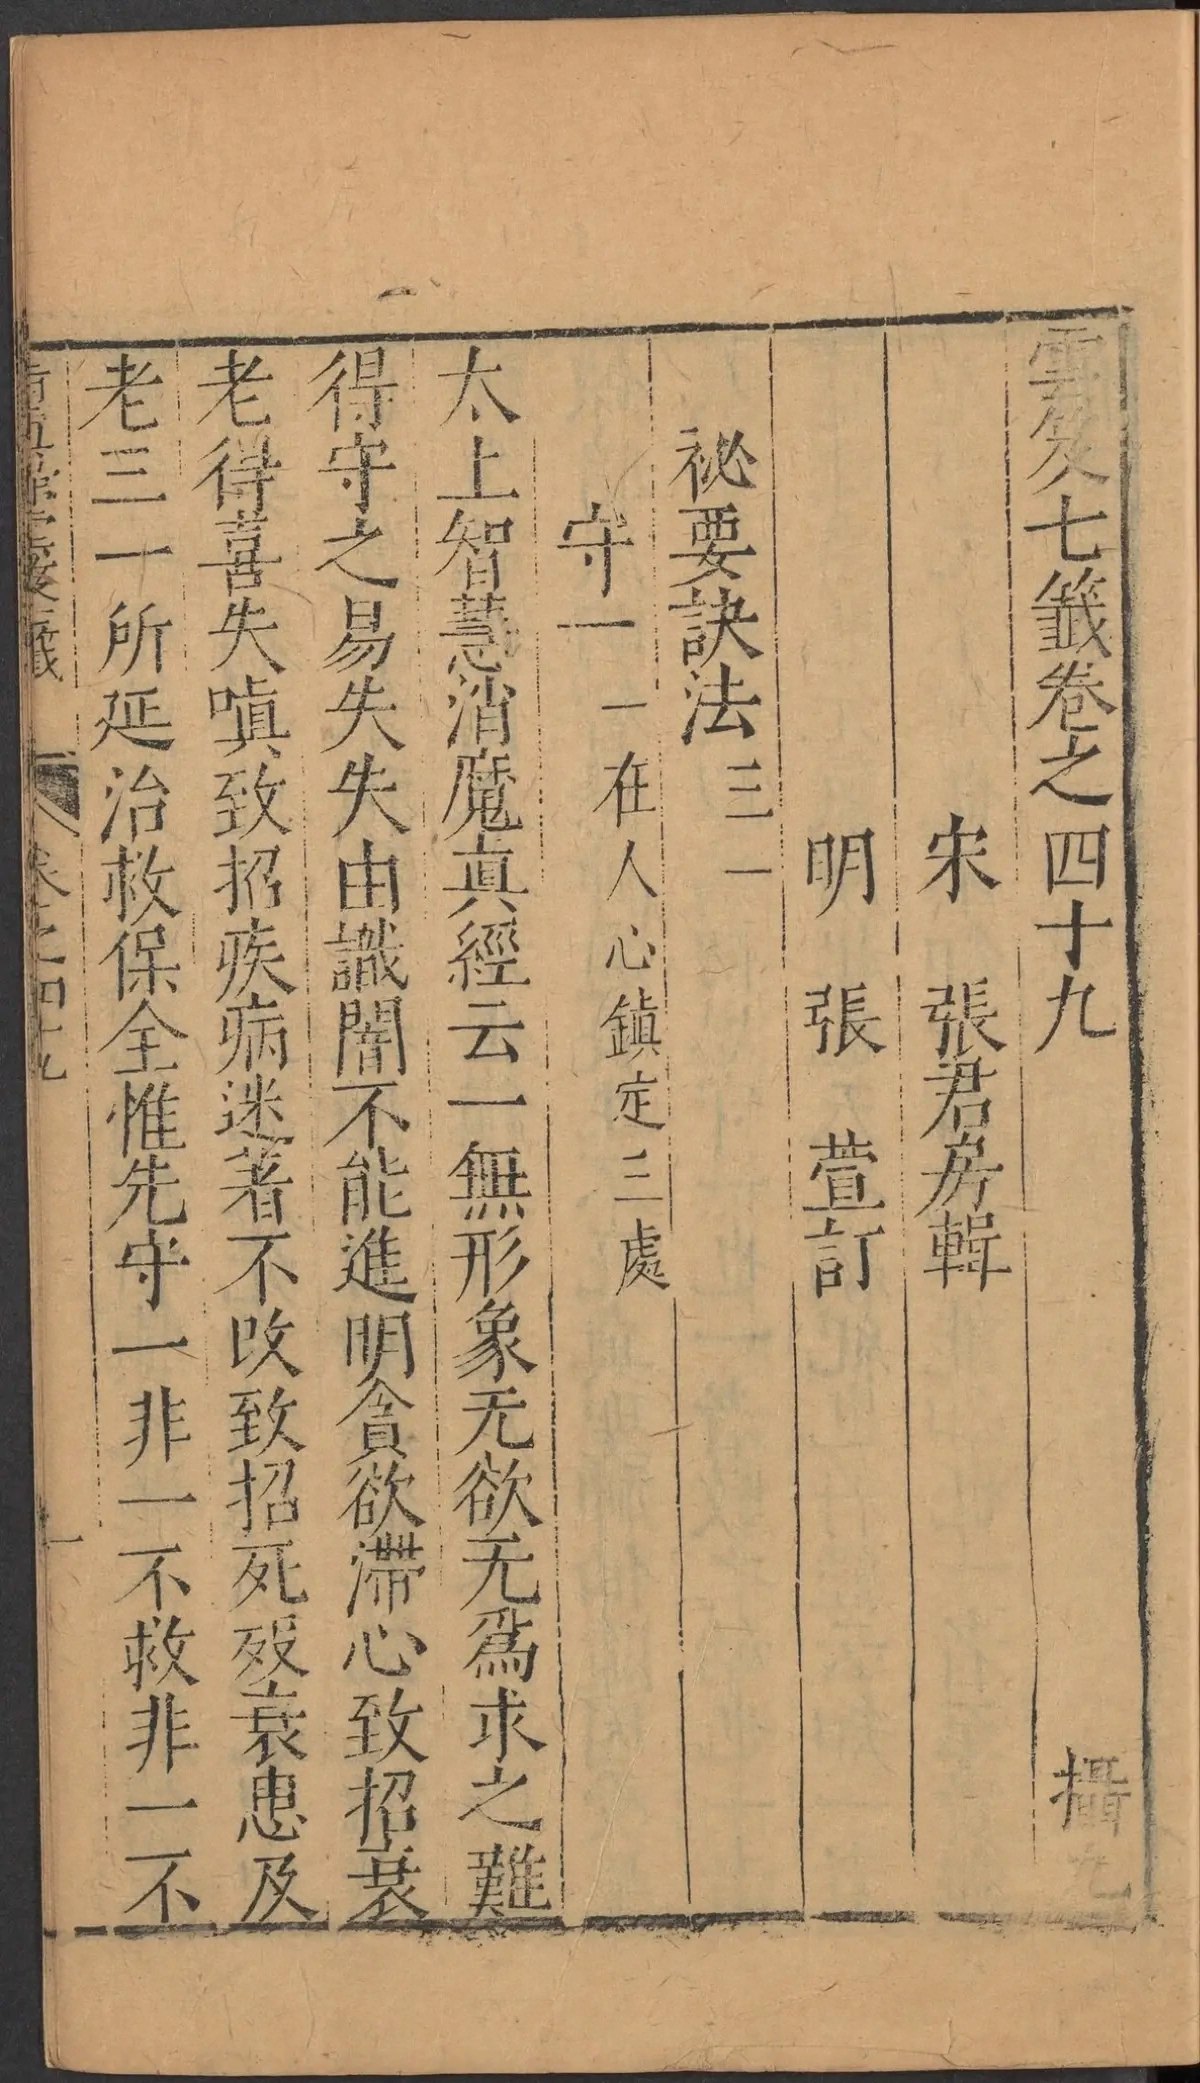 雲笈七籤卷之四十九 攝九
宋 張君房輯
明 張 萱訂
祕要訣法三一
守一一在人心鎮定三處
太上智慧消魔眞經云一無形象无欲无爲求之難
得守之易失失由識闇不能進明貪欲滯心致招衰
老得喜失嗔致招疾病迷著不改致招死歿衰患及
老三一所延治救保全惟先守一非一不救非一不
卷之四十九
一